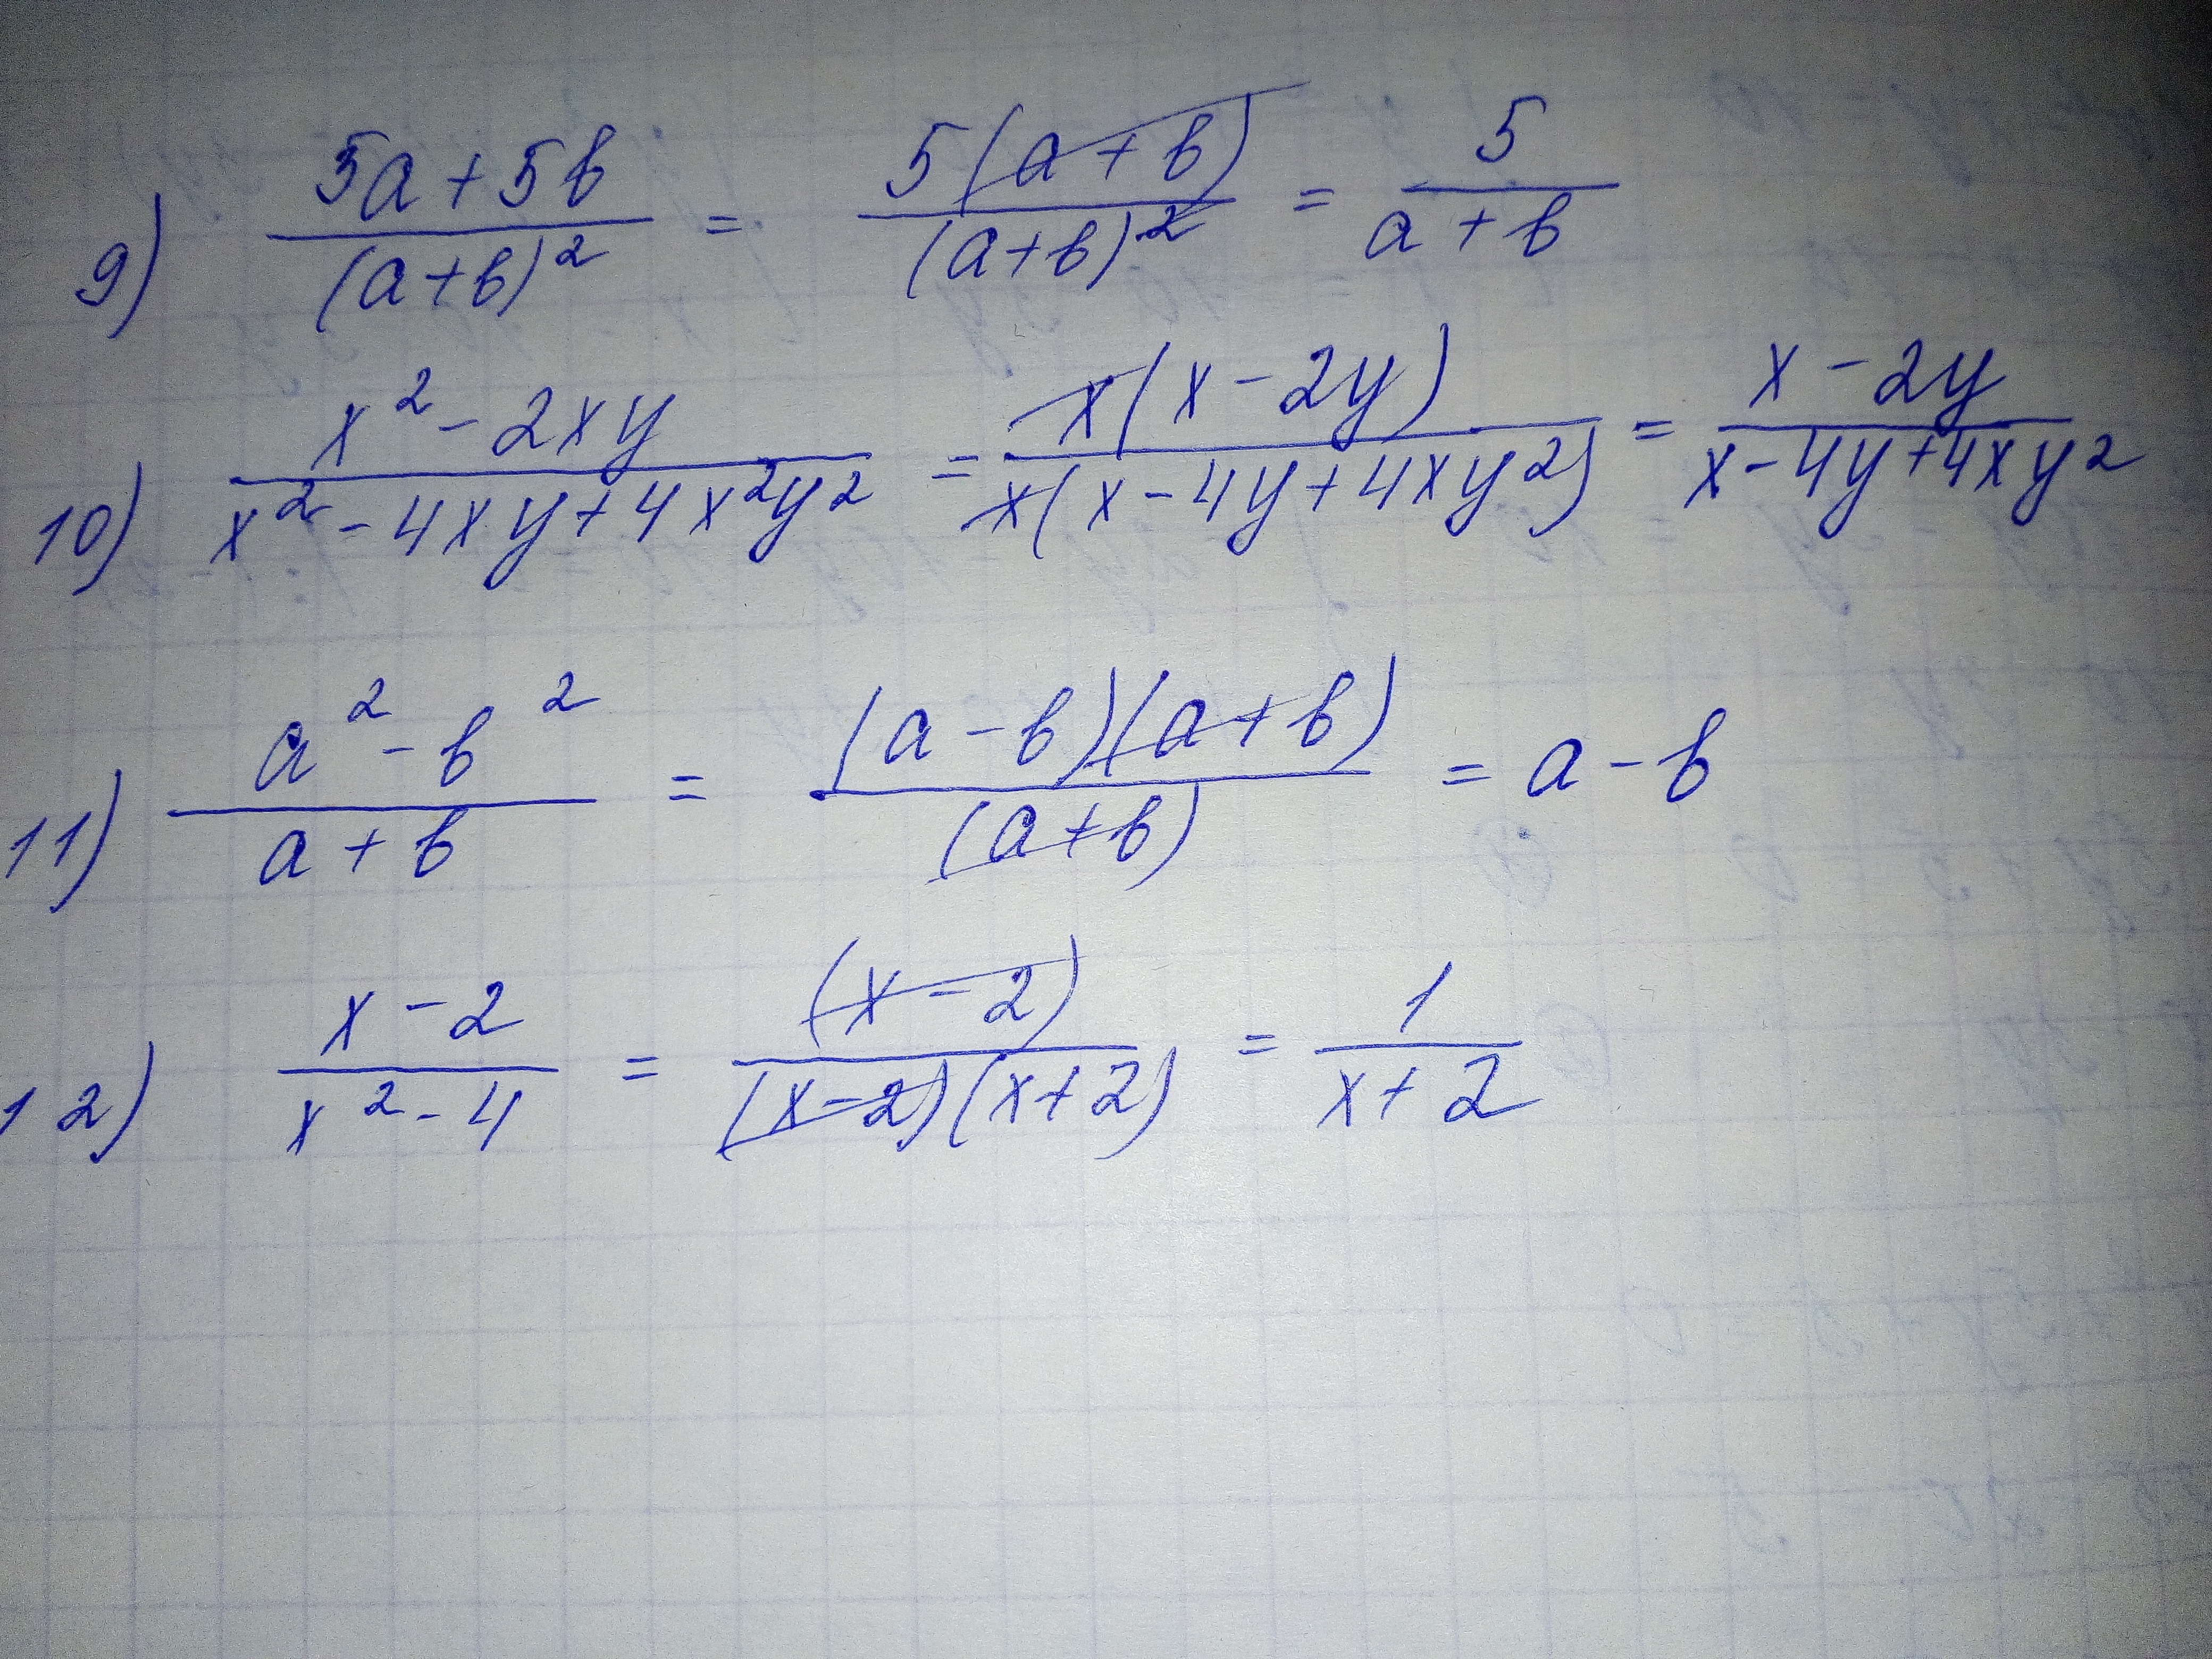 9) (5a+5b)/(a+b)² = 5(a+b)/(a+b)² = 5/(a+b)
10) (x²-2xy)/(x²-4xy+4x²y²) = x(x-2y)/x(x-4y+4xy²) = (x-2y)/(x-4y+4xy²)
11) (a²-b²)/(a+b) = (a-b)(a+b)/(a+b) = a-b
12) (x-2)/(x²-4) = (x-2)/(x-2)(x+2) = 1/(x+2)